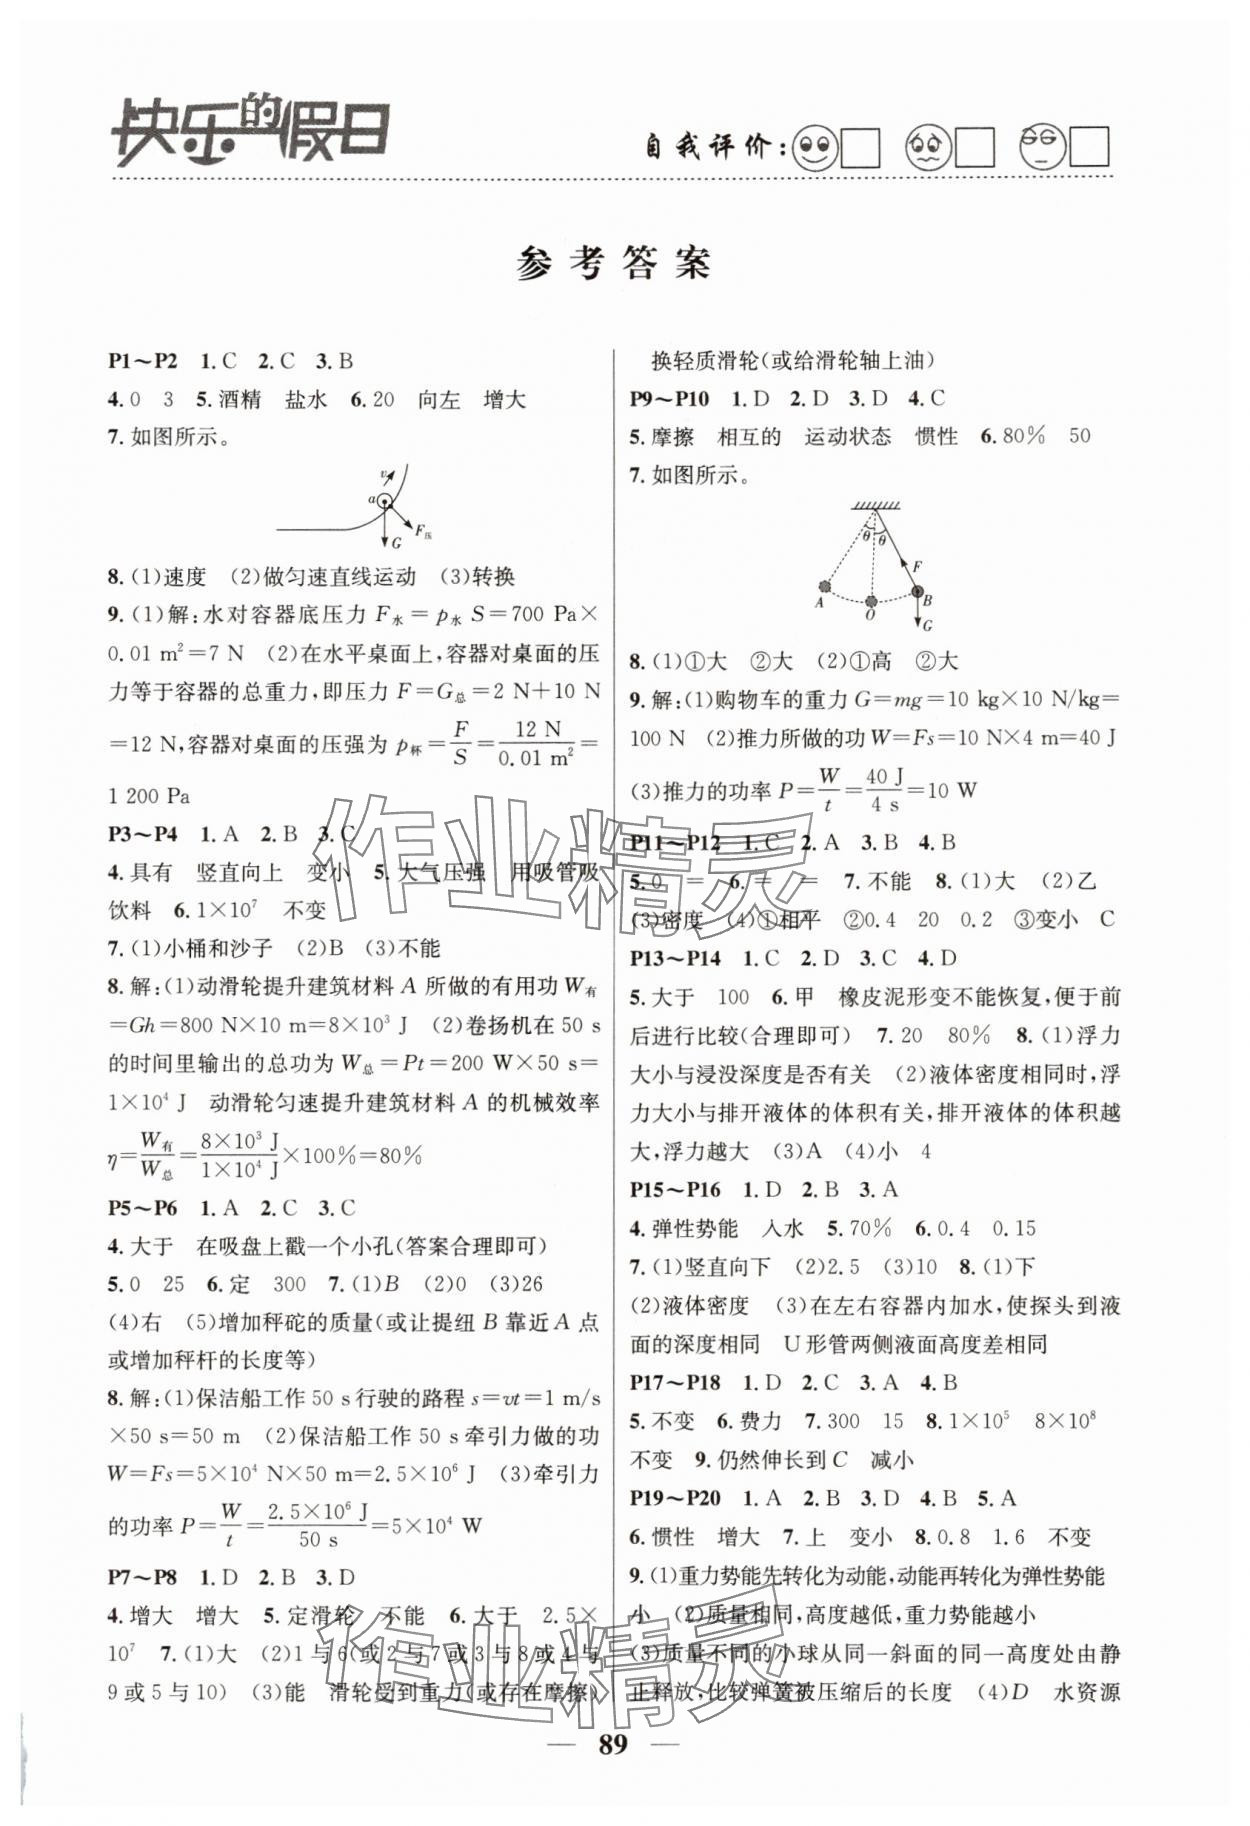 快乐的假日
自我评价:
参考答案
P1～P2 1.C 2.C 3.B
4.0 3 5.酒精 盐水 6.20 向左 增大
7.如图所示。
v
a
F压
G
8.(1)速度 (2)做匀速直线运动 (3)转换
9.(1)解:水对容器底压力 F水=p水 S=700 Pa×
0.01 m²=7 N (2)在水平桌面上,容器对桌面的压
力等于容器的总重力,即压力 F=G总=2 N+10 N
=12 N,容器对桌面的压强为 p杯=F/S=12 N/0.01 m²=
1 200 Pa
P3～P4 1.A 2.B 3.C
4.具有 竖直向上 变小 5.大气压强 用吸管吸
饮料 6.1×10⁷ 不变
7.(1)小桶和沙子 (2)B (3)不能
8.解:(1)动滑轮提升建筑材料 A 所做的有用功 W有
=Gh=800 N×10 m=8×10³ J (2)卷扬机在 50 s
的时间里输出的总功为 W总=Pt=200 W×50 s=
1×10⁴ J 动滑轮匀速提升建筑材料 A 的机械效率
η=W有/W总=8×10³ J/1×10⁴ J×100%=80%
P5～P6 1.A 2.C 3.C
4.大于 在吸盘上戳一个小孔(答案合理即可)
5.0 25 6.定 300 7.(1)B (2)0 (3)26
(4)右 (5)增加秤砣的质量(或让提纽 B 靠近 A 点
或增加秤杆的长度等)
8.解:(1)保洁船工作 50 s 行驶的路程 s=vt=1 m/s
×50 s=50 m (2)保洁船工作 50 s 牵引力做的功
W=Fs=5×10⁴ N×50 m=2.5×10⁶ J (3)牵引力
的功率 P=W/t=2.5×10⁶ J/50 s=5×10⁴ W
P7～P8 1.D 2.B 3.D
4.增大 增大 5.定滑轮 不能 6.大于 2.5×
10⁷ 7.(1)大 (2)1 与 6(或 2 与 7 或 3 与 8 或 4 与
9 或 5 与 10) (3)能 滑轮受到重力(或存在摩擦)
换轻质滑轮(或给滑轮轴上油)
P9～P10 1.D 2.D 3.D 4.C
5.摩擦 相互的 运动状态 惯性 6.80% 50
7.如图所示。
θ θ
F
A O B
G
8.(1)①大 ②大 (2)①高 ②大
9.解:(1)购物车的重力 G=mg=10 kg×10 N/kg=
100 N (2)推力所做的功 W=Fs=10 N×4 m=40 J
(3)推力的功率 P=W/t=40 J/4 s=10 W
P11～P12 1.C 2.A 3.B 4.B
5.0 = 6.= = 7.不能 8.(1)大 (2)乙
(3)密度 (4)①相平 ②0.4 20 0.2 ③变小 C
P13～P14 1.C 2.D 3.C 4.D
5.大于 100 6.甲 橡皮泥形变不能恢复,便于前
后进行比较(合理即可) 7.20 80% 8.(1)浮力
大小与浸没深度是否有关 (2)液体密度相同时,浮
力大小与排开液体的体积有关,排开液体的体积越
大,浮力越大 (3)A (4)小 4
P15～P16 1.D 2.B 3.A
4.弹性势能 入水 5.70% 6.0.4 0.15
7.(1)竖直向下 (2)2.5 (3)10 8.(1)下
(2)液体密度 (3)在左右容器内加水,使探头到液
面的深度相同 U 形管两侧液面高度差相同
P17～P18 1.D 2.C 3.A 4.B
5.不变 6.费力 7.300 15 8.1×10⁵ 8×10⁸
不变 9.仍然伸长到 C 减小
P19～P20 1.A 2.B 3.D 4.B 5.A
6.惯性 增大 7.上 变小 8.0.8 1.6 不变
9.(1)重力势能先转化为动能,动能再转化为弹性势能
小 (2)质量相同,高度越低,重力势能越小
(3)质量不同的小球从同一斜面的同一高度处由静
止释放,比较弹簧被压缩后的长度 (4)D 水资源
作业精灵
作业精灵
— 89 —